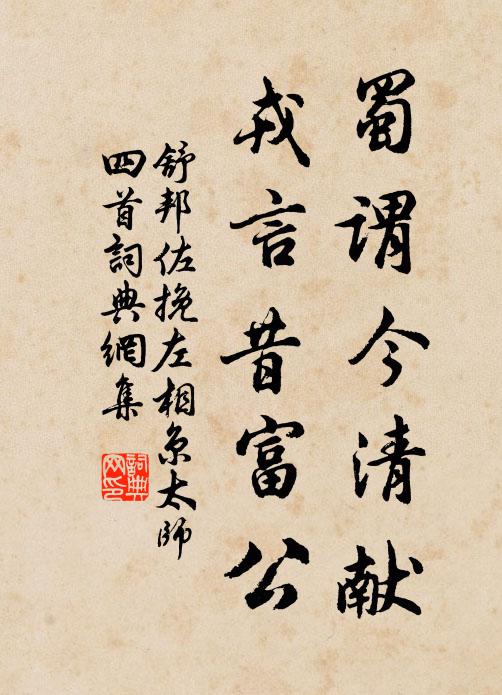 蜀謂今清献
戎言昔富公
舒邦佐挽左相京太師
四首詞典網集
詞典
网印